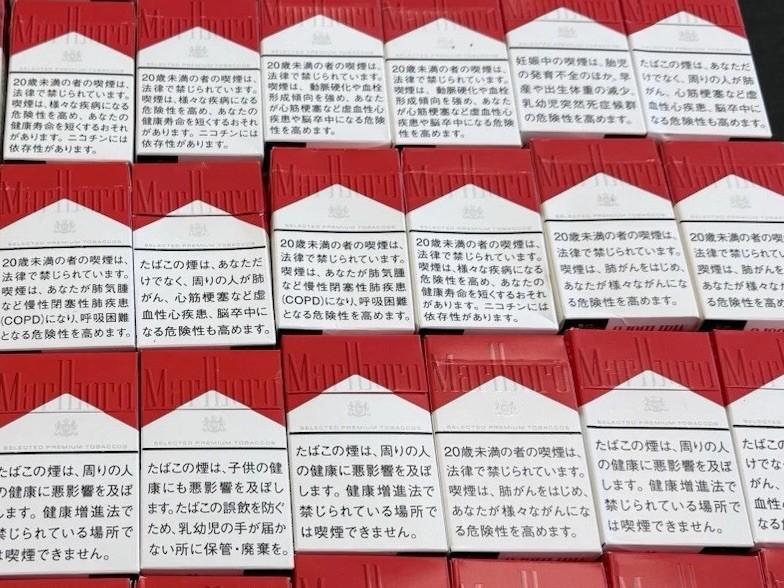 Marlboro
SELECTED PREMIUM TOBACCOS
20歳未満の者の喫煙は、
法律で禁じられています。
喫煙は、様々な疾病になる
危険性を高め、あなたの
健康寿命を短くするおそれ
があります。ニコチンには
依存性があります。
Marlboro
SELECTED PREMIUM TOBACCOS
20歳未満の者の喫煙は、
法律で禁じられています。
喫煙は、様々な疾病になる
危険性を高め、あなたの
健康寿命を短くするおそれ
があります。ニコチンには
依存性があります。
Marlboro
SELECTED PREMIUM TOBACCOS
20歳未満の者の喫煙は、
法律で禁じられています。
喫煙は、動脈硬化や血栓
形成傾向を強め、あなた
が心筋梗塞など虚血性心
疾患や脳卒中になる危険
性を高めます。
Marlboro
SELECTED PREMIUM TOBACCOS
20歳未満の者の喫煙は、
法律で禁じられています。
喫煙は、動脈硬化や血栓
形成傾向を強め、あなた
が心筋梗塞など虚血性心
疾患や脳卒中になる危険
性を高めます。
Marlboro
SELECTED PREMIUM TOBACCOS
妊娠中の喫煙は、胎児
の発育不全のほか、早
産や出生体重の減少、
乳幼児突然死症候群
の危険性を高めます。
Marlboro
SELECTED PREMIUM TOBACCOS
たばこの煙は、あなただ
けでなく、周りの人が肺
がん、心筋梗塞など虚
血性心疾患、脳卒中に
なる危険性も高めます。
Marlboro
SELECTED PREMIUM TOBACCOS
20歳未満の者の喫煙は、
法律で禁じられています。
喫煙は、あなたが肺気腫
など慢性閉塞性肺疾患
(COPD)になり、呼吸困難
となる危険性を高めます。
Marlboro
SELECTED PREMIUM TOBACCOS
たばこの煙は、あなただ
けでなく、周りの人が肺
がん、心筋梗塞など虚
血性心疾患、脳卒中に
なる危険性も高めます。
Marlboro
SELECTED PREMIUM TOBACCOS
20歳未満の者の喫煙は、
法律で禁じられています。
喫煙は、あなたが肺気腫
など慢性閉塞性肺疾患
(COPD)になり、呼吸困難
となる危険性を高めます。
Marlboro
SELECTED PREMIUM TOBACCOS
20歳未満の者の喫煙は、
法律で禁じられています。
喫煙は、様々な疾病になる
危険性を高め、あなたの
健康寿命を短くするおそれ
があります。ニコチンには
依存性があります。
Marlboro
SELECTED PREMIUM TOBACCOS
20歳未満の者の喫煙は、
法律で禁じられています。
喫煙は、肺がんをはじめ、
あなたが様々ながんにな
る危険性を高めます。
Marlboro
20歳未満の者の
法律で禁じられて
喫煙は、肺がんを
あなたが様々なが
る危険性を高め
Marlboro
SELECTED PREMIUM TOBACCOS
たばこの煙は、周りの人
の健康に悪影響を及ぼ
します。健康増進法で
禁じられている場所で
は喫煙できません。
Marlboro
SELECTED PREMIUM TOBACCOS
たばこの煙は、子供の健
康にも悪影響を及ぼしま
す。たばこの誤飲を防ぐ
ため、乳幼児の手が届か
ない所に保管・廃棄を。
Marlboro
SELECTED PREMIUM TOBACCOS
たばこの煙は、周りの人
の健康に悪影響を及ぼ
します。健康増進法で
禁じられている場所で
は喫煙できません。
Marlboro
SELECTED PREMIUM TOBACCOS
20歳未満の者の喫煙は、
法律で禁じられています。
喫煙は、肺がんをはじめ、
あなたが様々ながんにな
る危険性を高めます。
Marlboro
SELECTED PREMIUM TOBACCOS
たばこの煙は、周りの人
の健康に悪影響を及ぼ
します。健康増進法で
禁じられている場所で
は喫煙できません。
たばこ
けでな
がん、
血性
なる